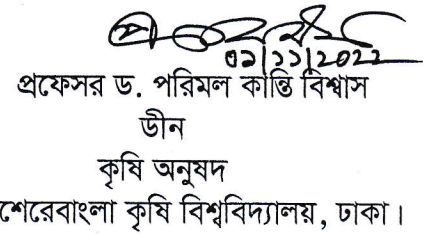 ০১/১১/২০২২
প্রফেসর ড. পরিমল কান্তি বিশ্বাস
ডীন
কৃষি অনুষদ
শেরেবাংলা কৃষি বিশ্ববিদ্যালয়, ঢাকা।